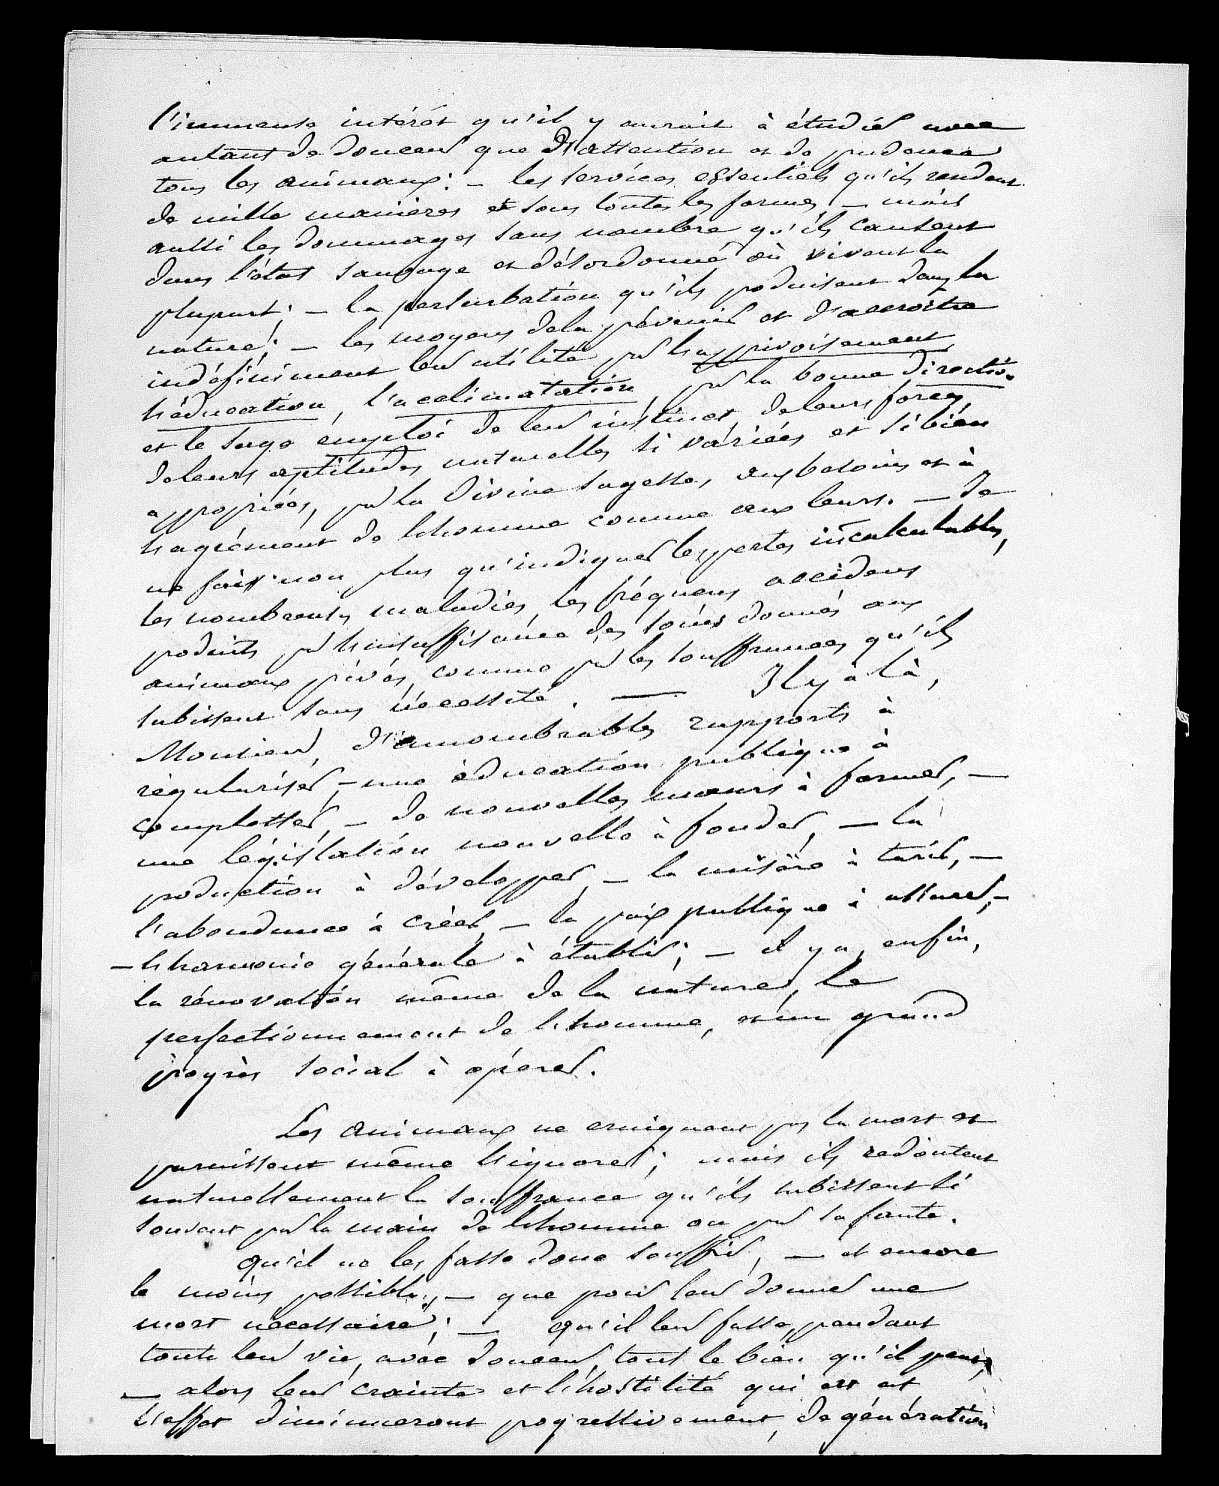 l'immense intérêt qu'il y aurait à étudier avec
autant de douceur que d'attention et de prudence
tous les animaux; – les services essentiels qu'ils rendent
de mille manières et sous toutes les formes, – mais
aussi les dommages sans nombre qu'ils causent
dans l'état sauvage et désordonné où vivent la
plupart; – la perturbation qu'ils produisent dans la
nature; – les moyens de la prévenir et d'accroître
indéfiniment leur utilité par l'apprivoisement,
l'éducation, l'acclimatation, par la bonne direction
et le sage emploi de leur instinct, de leurs forces,
de leurs aptitudes naturelles si variées et si bien
appropriées, par la Divine Sagesse, aux besoins et à
l'agrément de l'homme comme aux leurs. – Je
ne fais non plus qu'indiquer les pertes incalculables,
les nombreuses maladies, les fréquens accidens
produits par l'insuffisance des soins donnés aux
animaux privés, comme par les souffrances qu'ils
subissent sans nécessité. — Il y a là,
Monsieur, d'innombrables rapports à
régulariser, – une éducation publique à
completter, – de nouvelles mœurs à former, –
une législation nouvelle à fonder, – la
production à développer, – la misère à tarir, –
l'abondance à créer, – la paix publique à assurer, –
– l'harmonie générale à établir; – il y a, enfin,
la rénovation même de la nature, le
perfectionnement de l'homme, et un grand
progrès social à opérer.
Les animaux ne craignent pas la mort et
paraissent même l'ignorer; mais ils redoutent
naturellement la souffrance qu'ils subissent si
souvent par la main de l'homme ou par sa faute.
Qu'il ne les fasse donc souffrir, – et encore
le moins possible, – que pour leur donner une
mort nécessaire; – qu'il leur fasse, pendant
toute leur vie, avec douceur, tout le bien qu'il peut,
– alors leur crainte et l'hostilité qui en est
l'effet diminueront progressivement, de génération